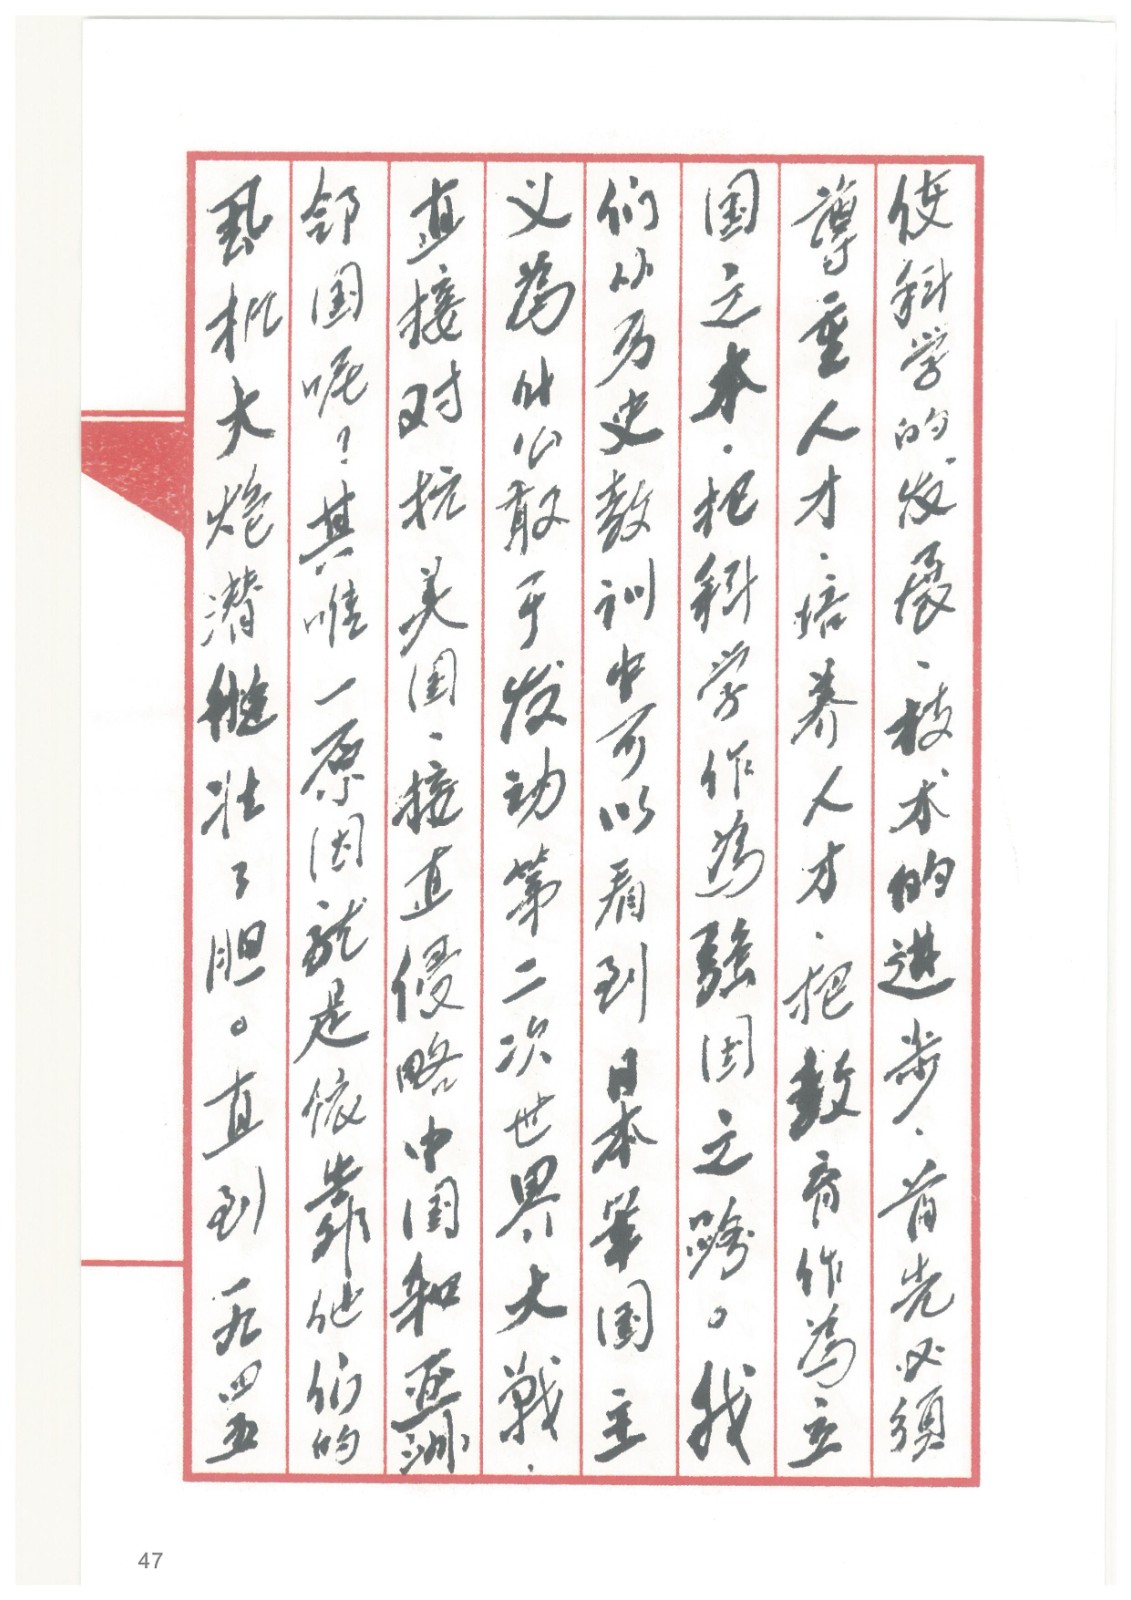 使科学的发展、技术的进步、首先必须
尊重人才、培养人才、把教育作为立
国之本、把科学作為强国之路。我
们从历史教训中可以看到日本军国主
义為什么敢于发动第二次世界大战、
直接对抗美国、接直侵略中国和亚洲
邻国呢？其唯一原因就是依靠他们的
飞机大炮潜艇壮了胆。直到一九四五
47